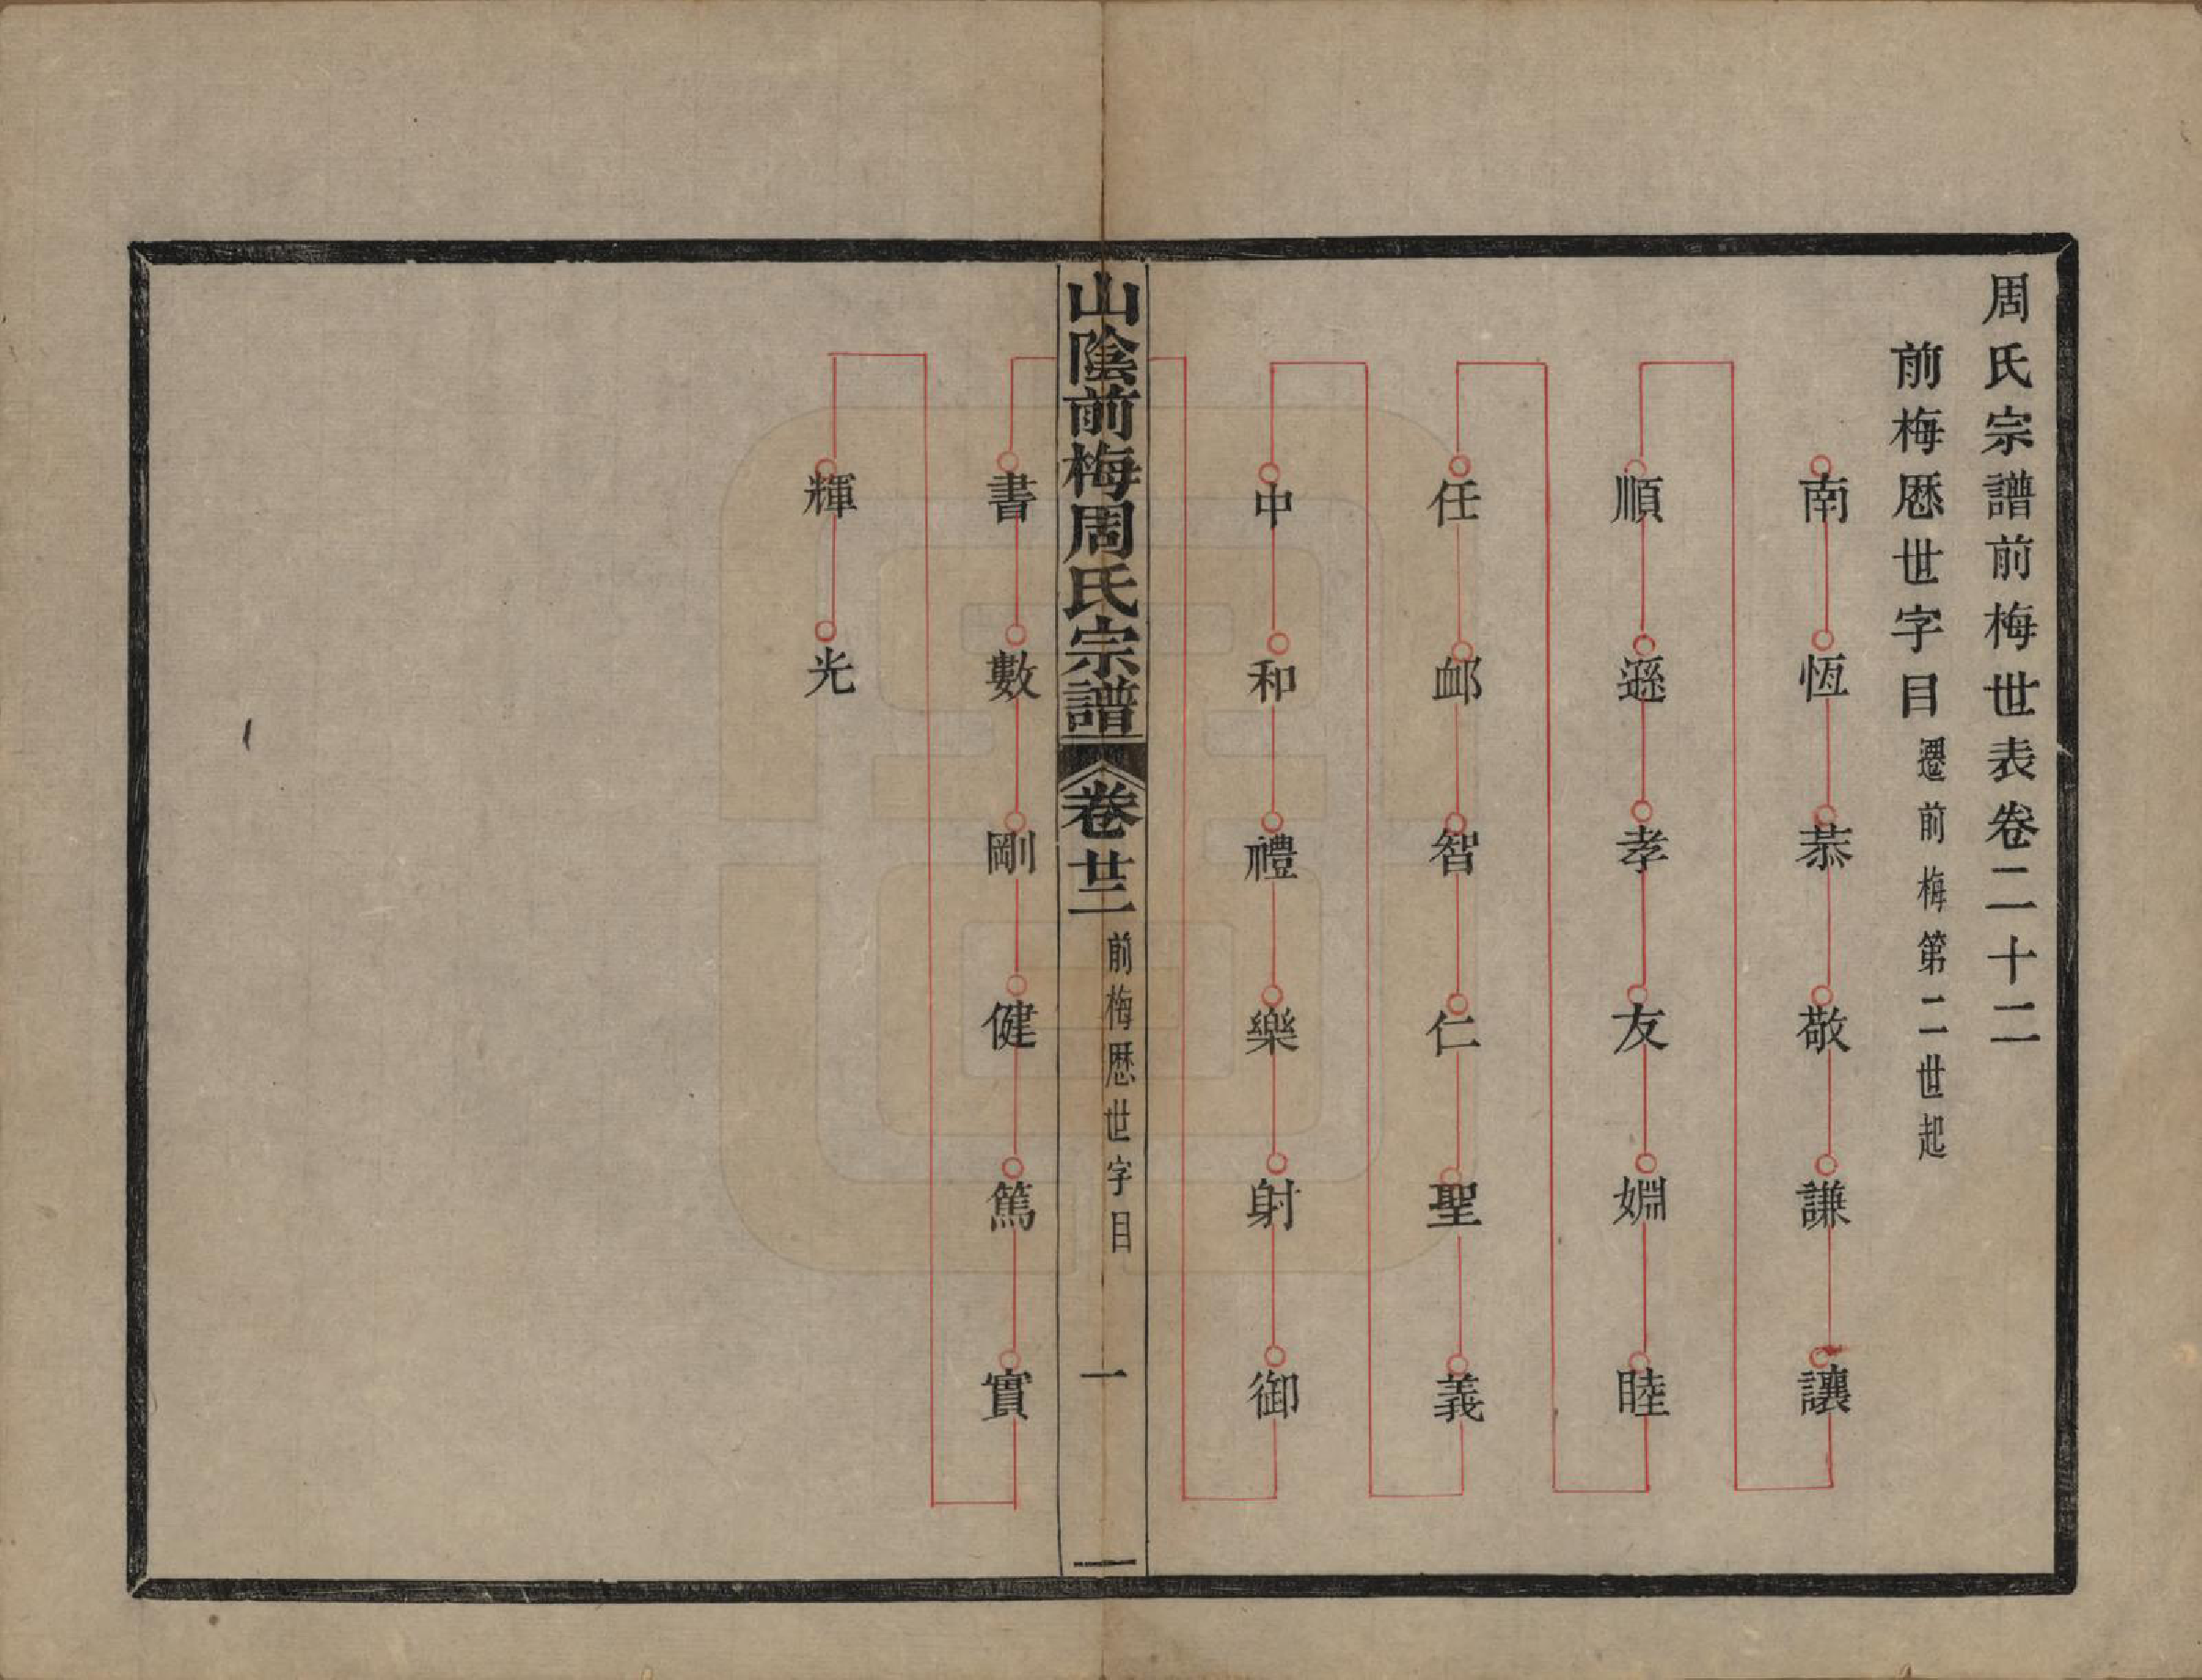 周氏宗譜前梅世表卷二十二
前梅厯世字目遷前梅第二世起
南恆恭敬謙讓
順遜孝友婣睦
任卹智仁聖義
中和禮樂射御
山陰前梅周氏宗譜
卷廿二
前梅厯世字目
一
書數剛健篤實
輝光